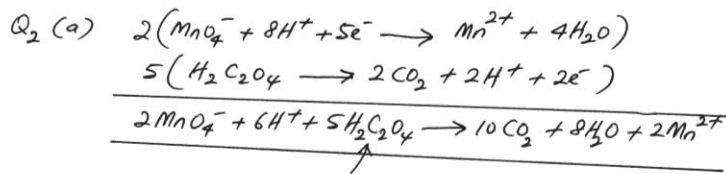 Q₂ (a) 2(MnO₄⁻ + 8H⁺ + 5e⁻ ⟶ Mn²⁺ + 4H₂O)
5(H₂C₂O₄ ⟶ 2CO₂ + 2H⁺ + 2e⁻)
2MnO₄⁻ + 6H⁺ + 5H₂C₂O₄ ⟶ 10CO₂ + 8H₂O + 2Mn²⁺